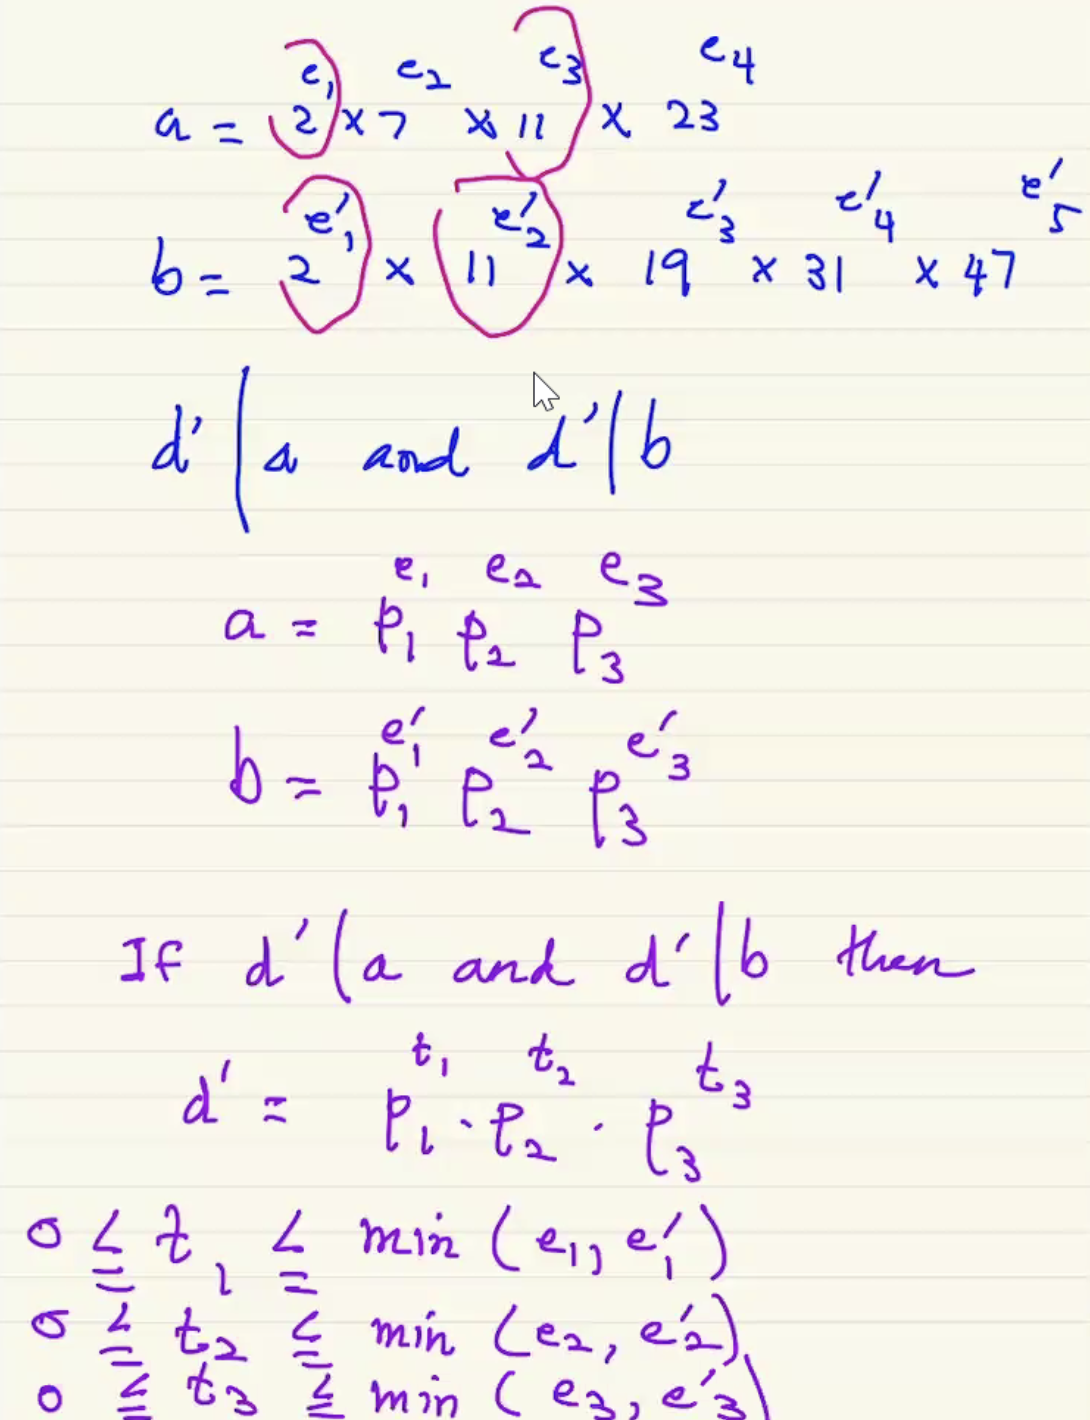 a = 2^e₁ × 7^e₂ × 11^e₃ × 23^e₄
b = 2^e′₁ × 11^e′₂ × 19^e′₃ × 31^e′₄ × 47^e′₅
d′ | a and d′ | b
a = p₁^e₁ p₂^e₂ p₃^e₃
b = p₁^e′₁ p₂^e′₂ p₃^e′₃
If d′ | a and d′ | b then
d′ = p₁^t₁ · p₂^t₂ · p₃^t₃
0 ≤ t₁ ≤ min (e₁, e′₁)
0 ≤ t₂ ≤ min (e₂, e′₂)
0 ≤ t₃ ≤ min (e₃, e′₃)